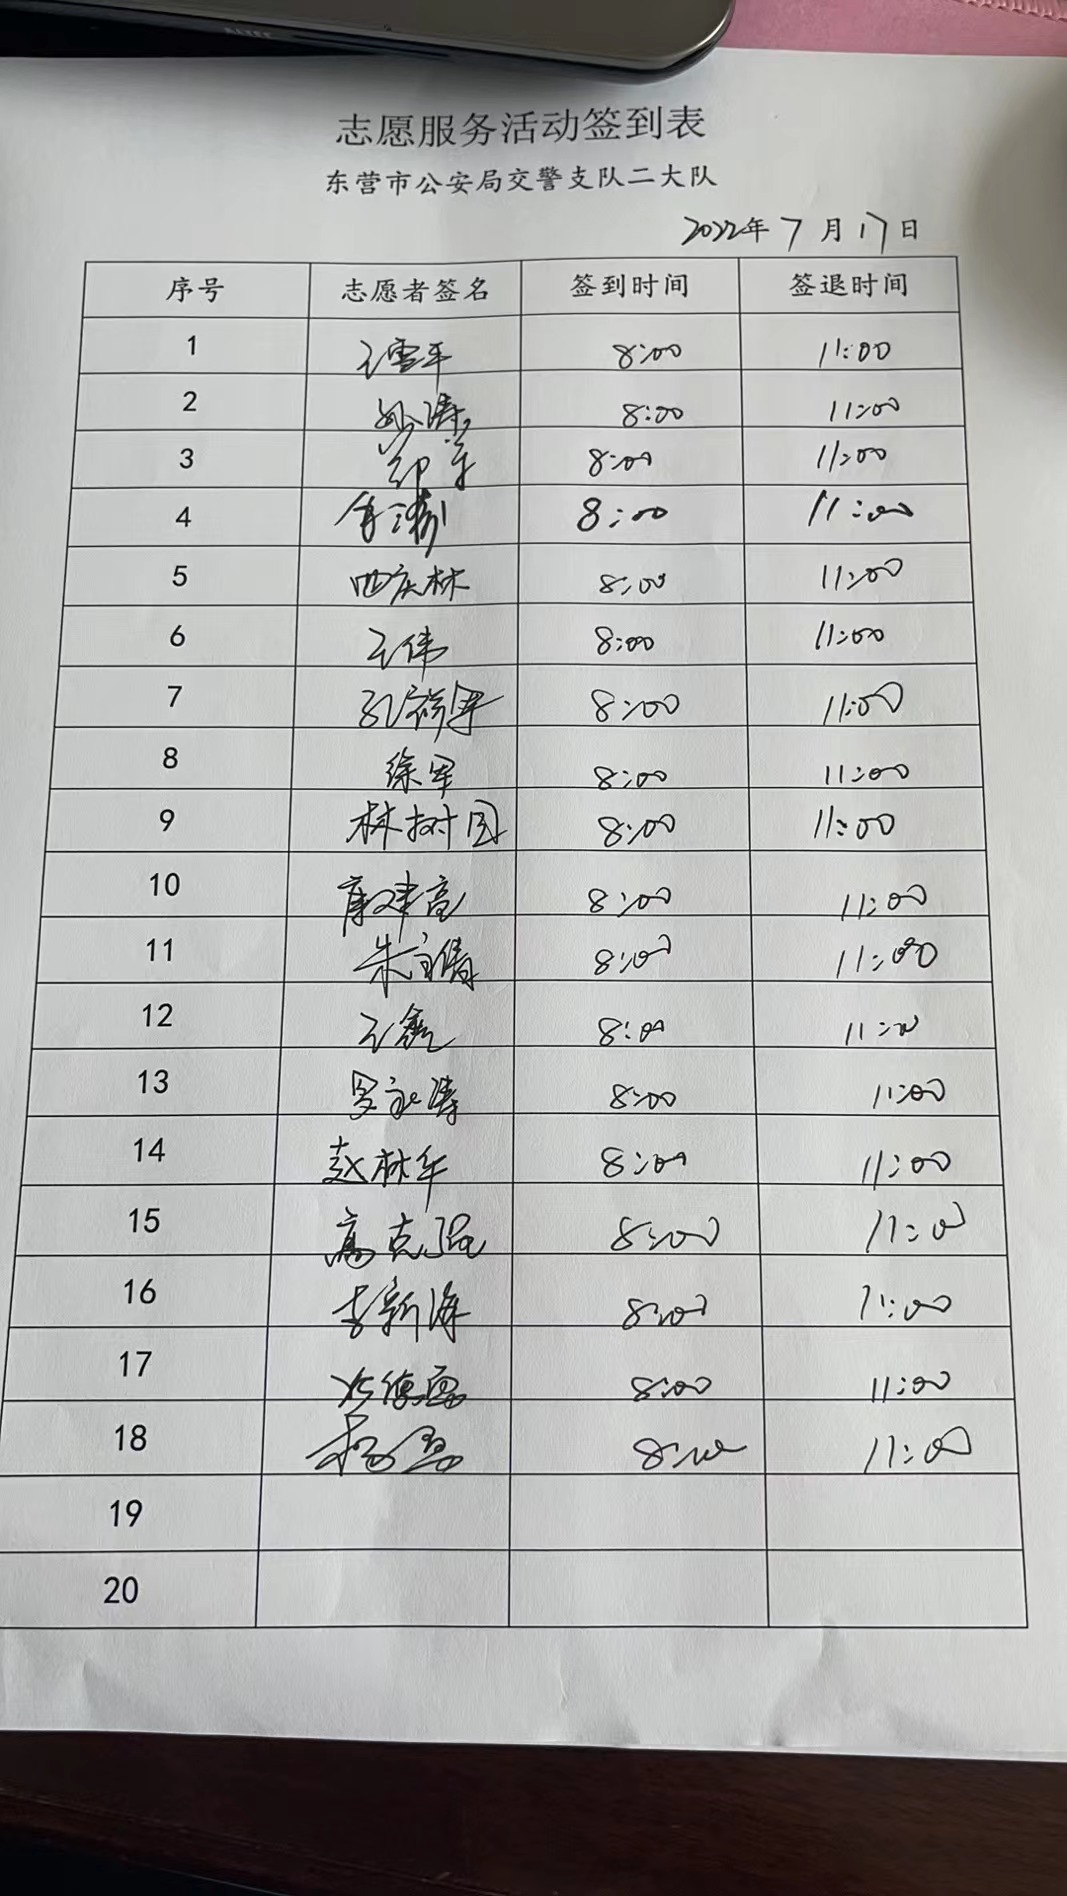 志愿服务活动签到表
东营市公安局交警支队二大队
2022年7月17日
序号 志愿者签名 签到时间 签退时间
1 王雪平 8:00 11:00
2 孙涛 8:00 11:00
3 8:00 11:00
4 8:00 11:00
5 庆林 8:00 11:00
6 王伟 8:00 11:00
7 孔祥军 8:00 11:00
8 徐军 8:00 11:00
9 林树国 8:00 11:00
10 建高 8:00 11:00
11 朱 8:00 11:00
12 王 8:00 11:00
13 罗永涛 8:00 11:00
14 赵林 8:00 11:00
15 高克强 8:00 11:00
16 李新海 8:00 11:00
17 8:00 11:00
18 杨磊 8:00 11:00
19
20